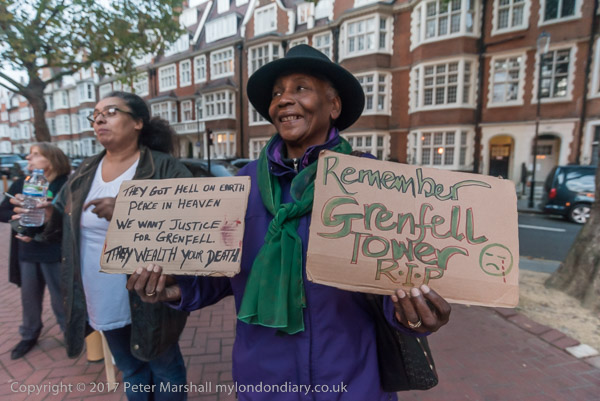 THEY GOT HELL ON EARTH
PEACE IN HEAVEN
WE WANT JUSTICE
FOR GRENFELL
THEY WEALTH YOUR DEATH!
Remember
Grenfell
TOWER
R.I.P
Copyright © 2017 Peter Marshall mylondondiary.co.uk